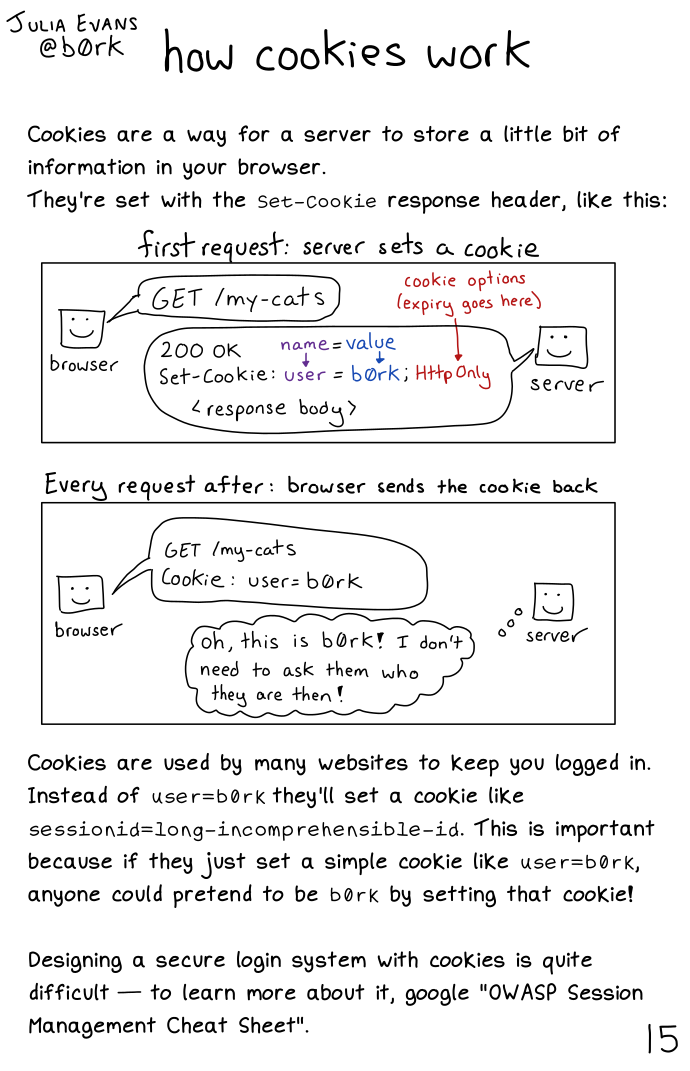 JULIA EVANS
@bØrk
how cookies work
Cookies are a way for a server to store a little bit of
information in your browser.
They're set with the Set-Cookie response header, like this:
first request: server sets a cookie
GET /my-cats
browser
cookie options
(expiry goes here)
200 OK name=value
Set-Cookie: user = bØrk; HttpOnly
<response body>
server
Every request after: browser sends the cookie back
GET /my-cats
Cookie: user=bØrk
browser
oh, this is bØrk! I don't
need to ask them who
they are then!
server
Cookies are used by many websites to keep you logged in.
Instead of user=bØrk they'll set a cookie like
sessionid=long-incomprehensible-id. This is important
because if they just set a simple cookie like user=bØrk,
anyone could pretend to be bØrk by setting that cookie!
Designing a secure login system with cookies is quite
difficult — to learn more about it, google "OWASP Session
Management Cheat Sheet".
15